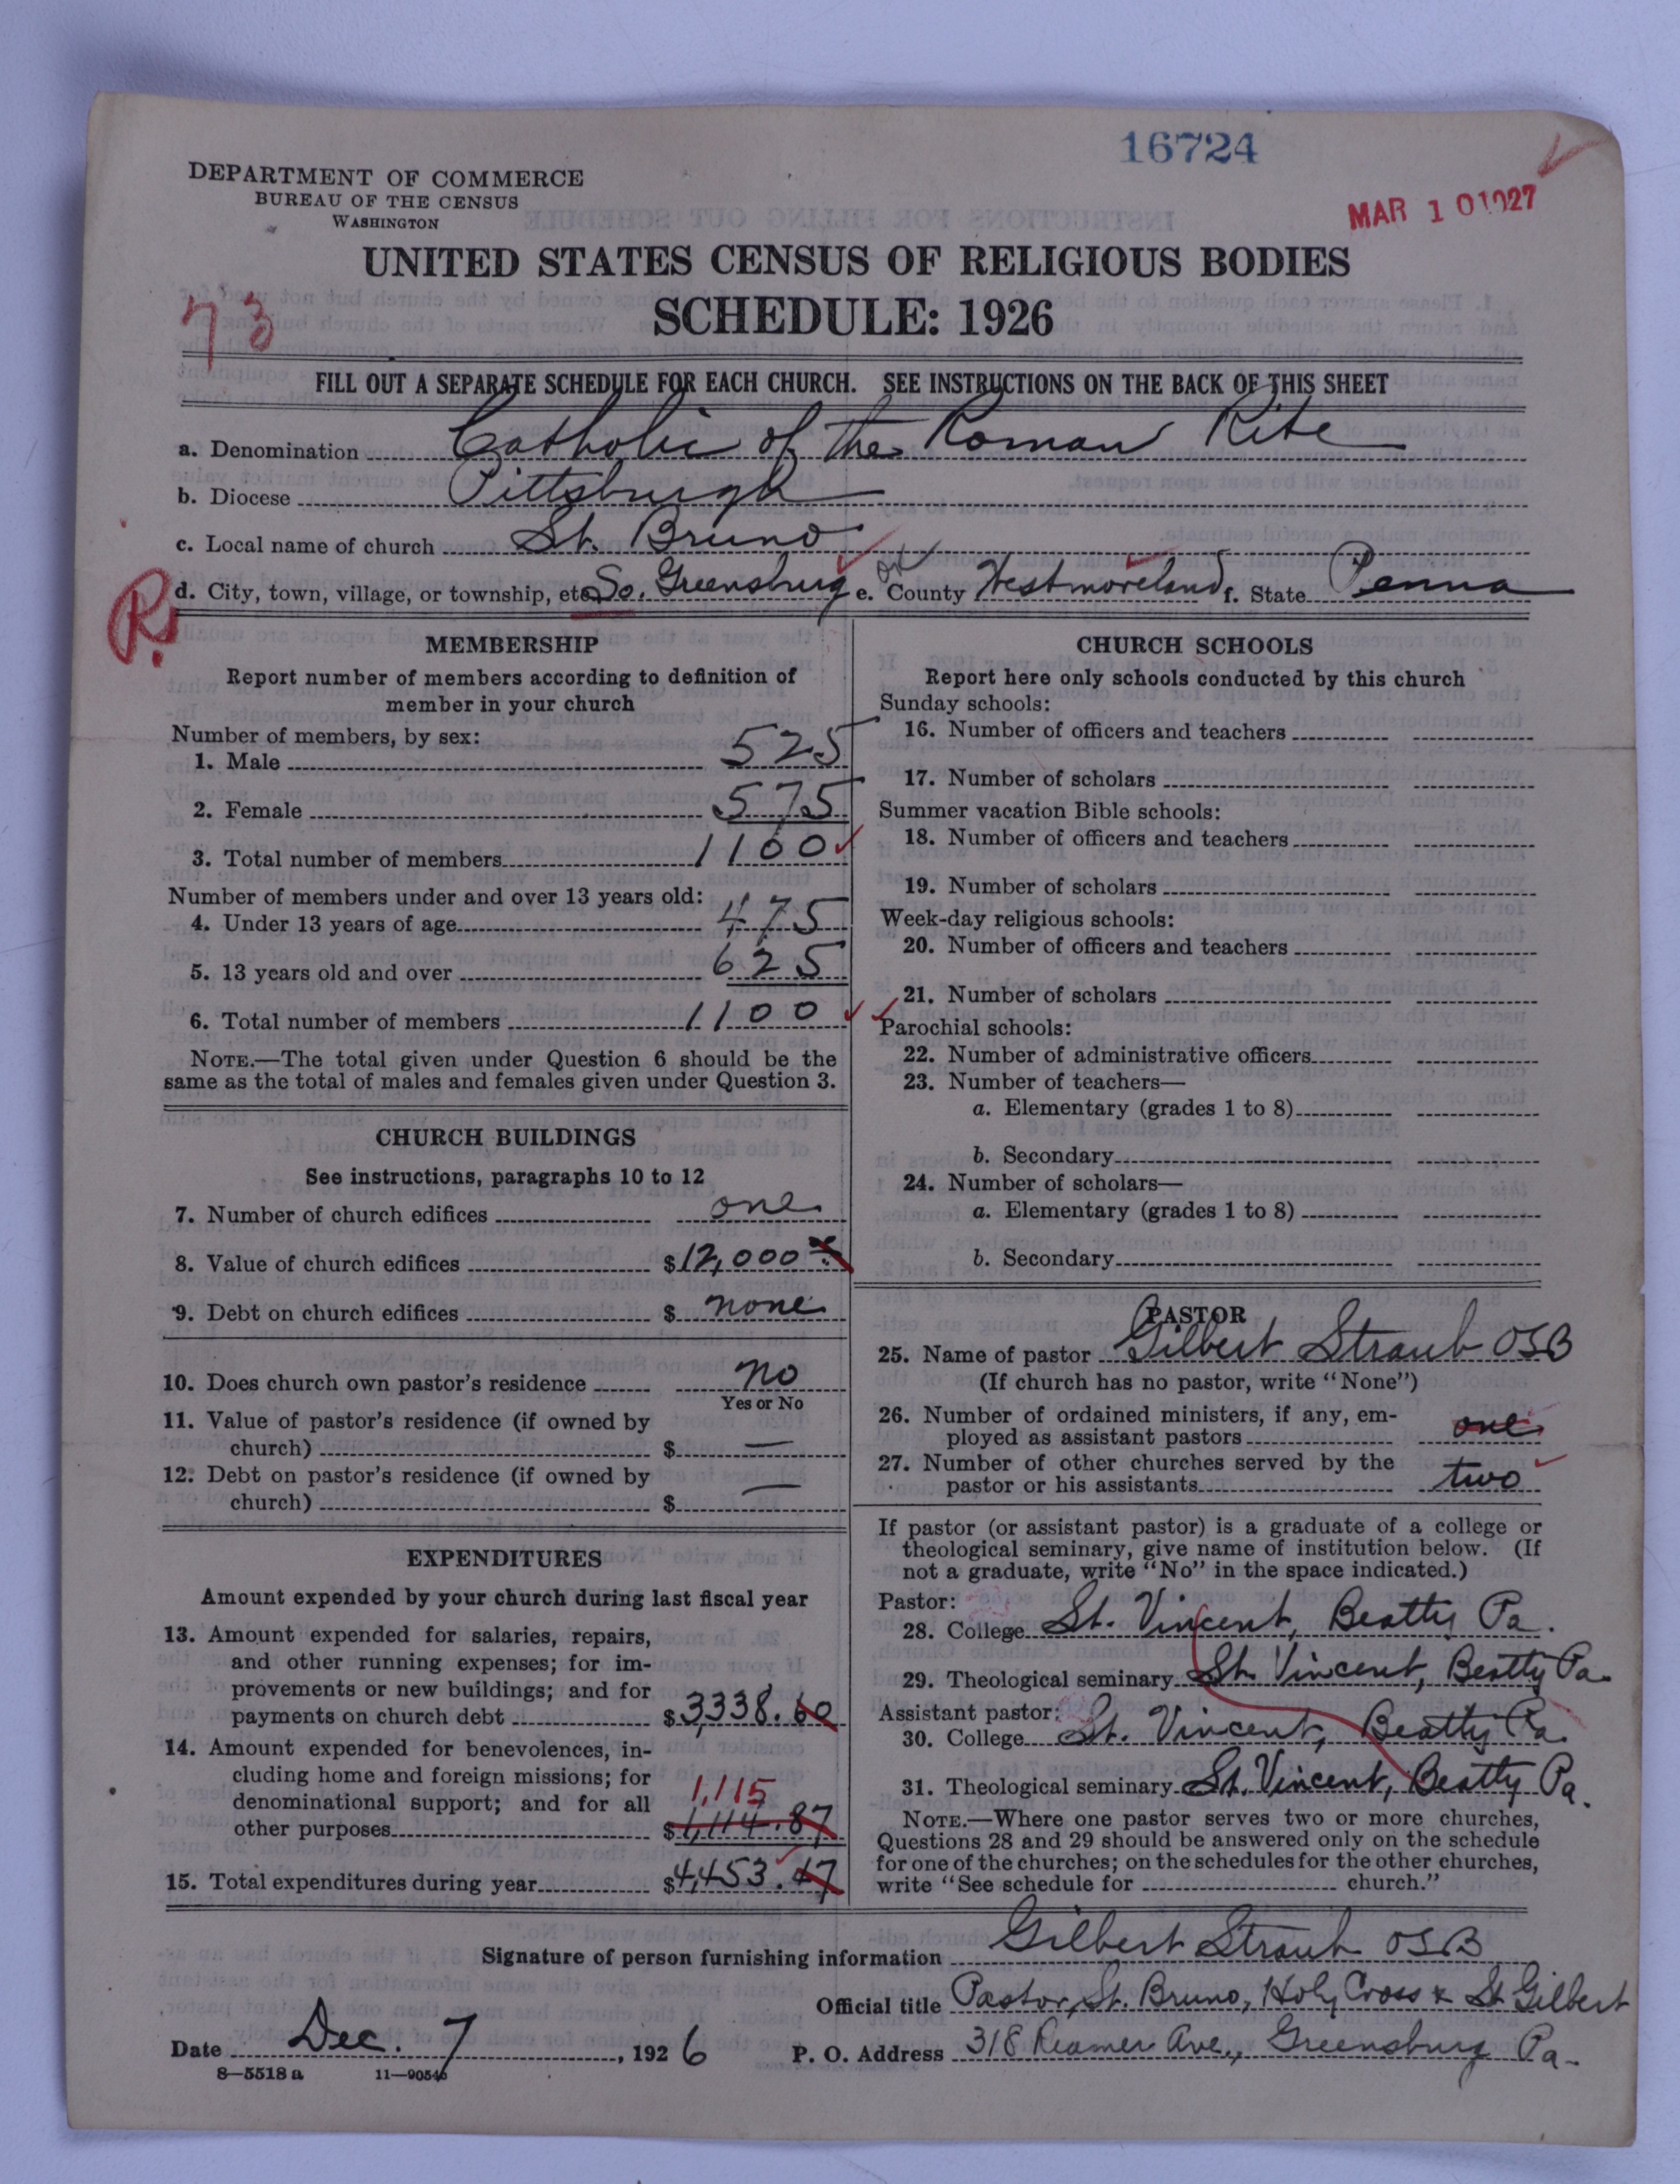 16724
DEPARTMENT OF COMMERCE
BUREAU OF THE CENSUS
WASHINGTON
MAR 10 1927
UNITED STATES CENSUS OF RELIGIOUS BODIES
73
SCHEDULE: 1926
FILL OUT A SEPARATE SCHEDULE FOR EACH CHURCH. SEE INSTRUCTIONS ON THE BACK OF THIS SHEET
a. Denomination Catholic of the Roman Rite
b. Diocese Pittsburgh
c. Local name of church St. Bruno
R. d. City, town, village, or township, etc. So. Greensburg e. County Westmoreland f. State Penna
MEMBERSHIP
Report number of members according to definition of
member in your church
Number of members, by sex:
1. Male 525
2. Female 575
3. Total number of members 1100
Number of members under and over 13 years old:
4. Under 13 years of age 475
5. 13 years old and over 625
6. Total number of members 1100
NOTE.—The total given under Question 6 should be the
same as the total of males and females given under Question 3.
CHURCH BUILDINGS
See instructions, paragraphs 10 to 12
7. Number of church edifices one
8. Value of church edifices $12,000
9. Debt on church edifices $ none
10. Does church own pastor's residence no
Yes or No
11. Value of pastor's residence (if owned by
church) $ —
12. Debt on pastor's residence (if owned by
church) $ —
EXPENDITURES
Amount expended by your church during last fiscal year
13. Amount expended for salaries, repairs,
and other running expenses; for im-
provements or new buildings; and for
payments on church debt $3,338.60
14. Amount expended for benevolences, in-
cluding home and foreign missions; for
denominational support; and for all 1,115
other purposes $1,114.87
15. Total expenditures during year $4,453.47
CHURCH SCHOOLS
Report here only schools conducted by this church
Sunday schools:
16. Number of officers and teachers
17. Number of scholars
Summer vacation Bible schools:
18. Number of officers and teachers
19. Number of scholars
Week-day religious schools:
20. Number of officers and teachers
21. Number of scholars
Parochial schools:
22. Number of administrative officers
23. Number of teachers—
a. Elementary (grades 1 to 8)
b. Secondary
24. Number of scholars—
a. Elementary (grades 1 to 8)
b. Secondary
PASTOR
25. Name of pastor Gilbert Straub OSB
(If church has no pastor, write "None")
26. Number of ordained ministers, if any, em-
ployed as assistant pastors one
27. Number of other churches served by the
pastor or his assistants two
If pastor (or assistant pastor) is a graduate of a college or
theological seminary, give name of institution below. (If
not a graduate, write "No" in the space indicated.)
Pastor:
28. College St. Vincent, Beatty Pa.
29. Theological seminary St. Vincent, Beatty Pa.
Assistant pastor:
30. College St. Vincent, Beatty Pa.
31. Theological seminary St. Vincent, Beatty Pa.
NOTE.—Where one pastor serves two or more churches,
Questions 28 and 29 should be answered only on the schedule
for one of the churches; on the schedules for the other churches,
write "See schedule for church."
Signature of person furnishing information Gilbert Straub OSB
Official title Pastor, St. Bruno, Holy Cross & St Gilbert
Date Dec. 7, 1926 P. O. Address 318 Reamer Ave., Greensburg Pa.
8—5518 a 11—90546